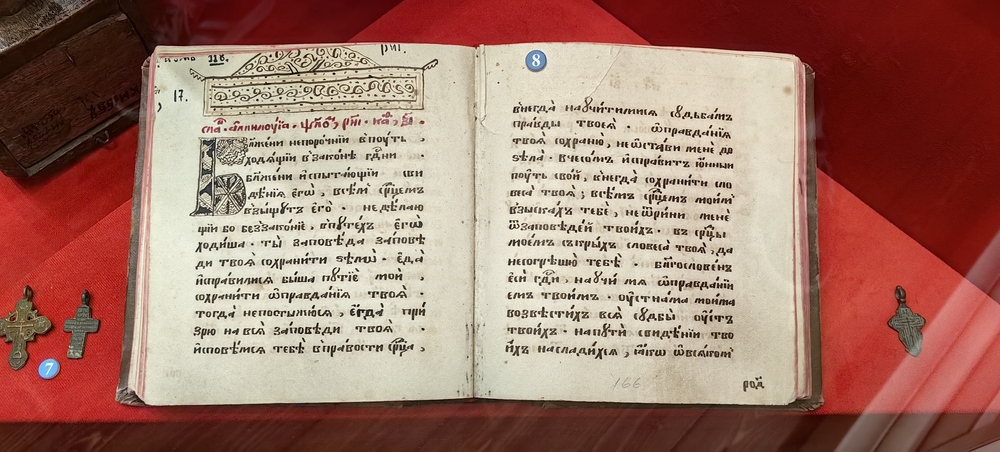 риі.
17.
сла · аллилоуїа · ѱло҇м, рні · ка҇ѳ, зı ·
Блажени непорочнїи в̾поуть ,
ходѧщїи в̾законѣ гд҇ни ·
Бл҃жени испытающїи сви
дѣнїѧ єгѡ̀ , всѣм̾ ср҇цемъ
в̾зыщꙋтъ єго̀ · не дѣлаю
щїи бо беззаконїе , в̾пꙋтехъ єгѡ̀
ходиша · ты̀ заповѣда заповѣ
ди твоѧ сохранити ѕѣлѡ̀ · є҆да̀
и҆справилисѧ быша пꙋтїе мои̾ ,
сохранити ѡ҆правданїѧ твоѧ ·
тогда̀ непостыжюсѧ , є҆гда̀ при́
зрю на всѧ̀ заповѣди твоѧ ·
и҆сповѣмсѧ тебѣ̀ в̾правости ср҇ца ,
8
в̾негда̀ наꙋчитимисѧ сꙋдьбамъ
правды твоеѧ̀ · ѡ҆правданїѧ
твоѧ сохраню̀ , неѡ҆стави менѐ до
ѕѣла̀ · в̾чесом̾ и҆справитъ ю҆ныи
поу́ть свои̾ , в̾негда̀ сохранити сло
веса̀ твоѧ̀ ; всѣм̾ ср҇цемъ моим̾
в̾зыскахъ тебѐ , не ѿрини менѐ
ѿзаповѣдей твоихъ · въ ср҇цы
моем̾ съкрыхъ словеса̀ твоѧ̀ , да
несогрѣшꙋ̀ тебѣ̀ · бл҃гословенъ
є҆си̾ гд҇и , наꙋчи мѧ ѡ҆правданїи
емъ твоим̾ · оу҆стнама моима
возвѣстихъ всѧ̀ сꙋдбы̀ оу҆стъ
твоихъ · на пꙋти̾ свидѣнїи тво
и҆хъ насладихсѧ , ꙗ҆кѡ ѡ҆всѧком̾
166
род̾
7